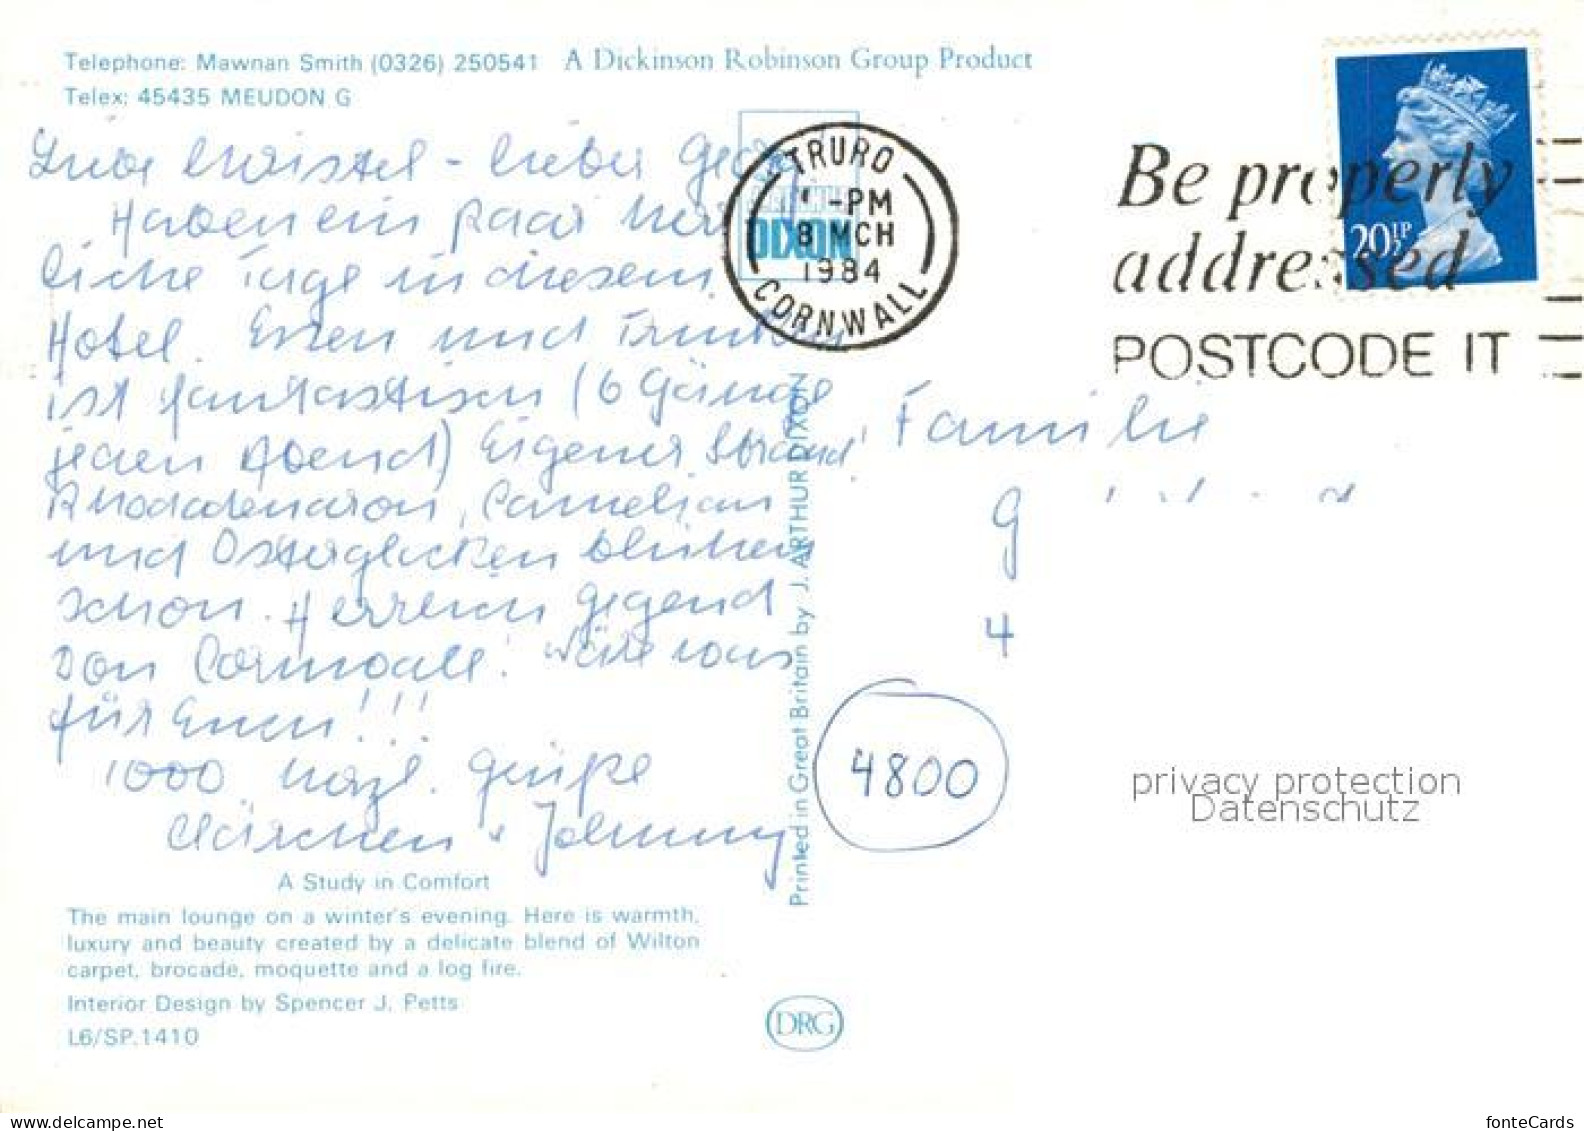 Telephone: Mawnan Smith (0326) 250541 A Dickinson Robinson Group Product
Telex: 45435 MEUDON G
Liebe Christel - lieber Georg
Haben ein paar herr
liche Tage in diesem
Hotel. Essen und Trinken
ist fantastisch (6 Gänge
jeden Abend) Eigener Strand
Rhododendron, Camelien
und Osterglocken blühen
schon. Herrlich Gegend
von Cornwall! Wäre was
für Euch!!!
1000 herzl. Grüße
Clärchen + Johnny
A Study in Comfort
The main lounge on a winter's evening. Here is warmth,
luxury and beauty created by a delicate blend of Wilton
carpet, brocade, moquette and a log fire.
Interior Design by Spencer J. Petts
L6/SP.1410
DIXON
Printed in Great Britain by J. ARTHUR DIXON
DRG
TRURO
-PM
8 MCH
1984
CORNWALL
Be properly
addressed
POSTCODE IT
20½P
Familie
G
4
4800
privacy protection
Datenschutz
fonteCards